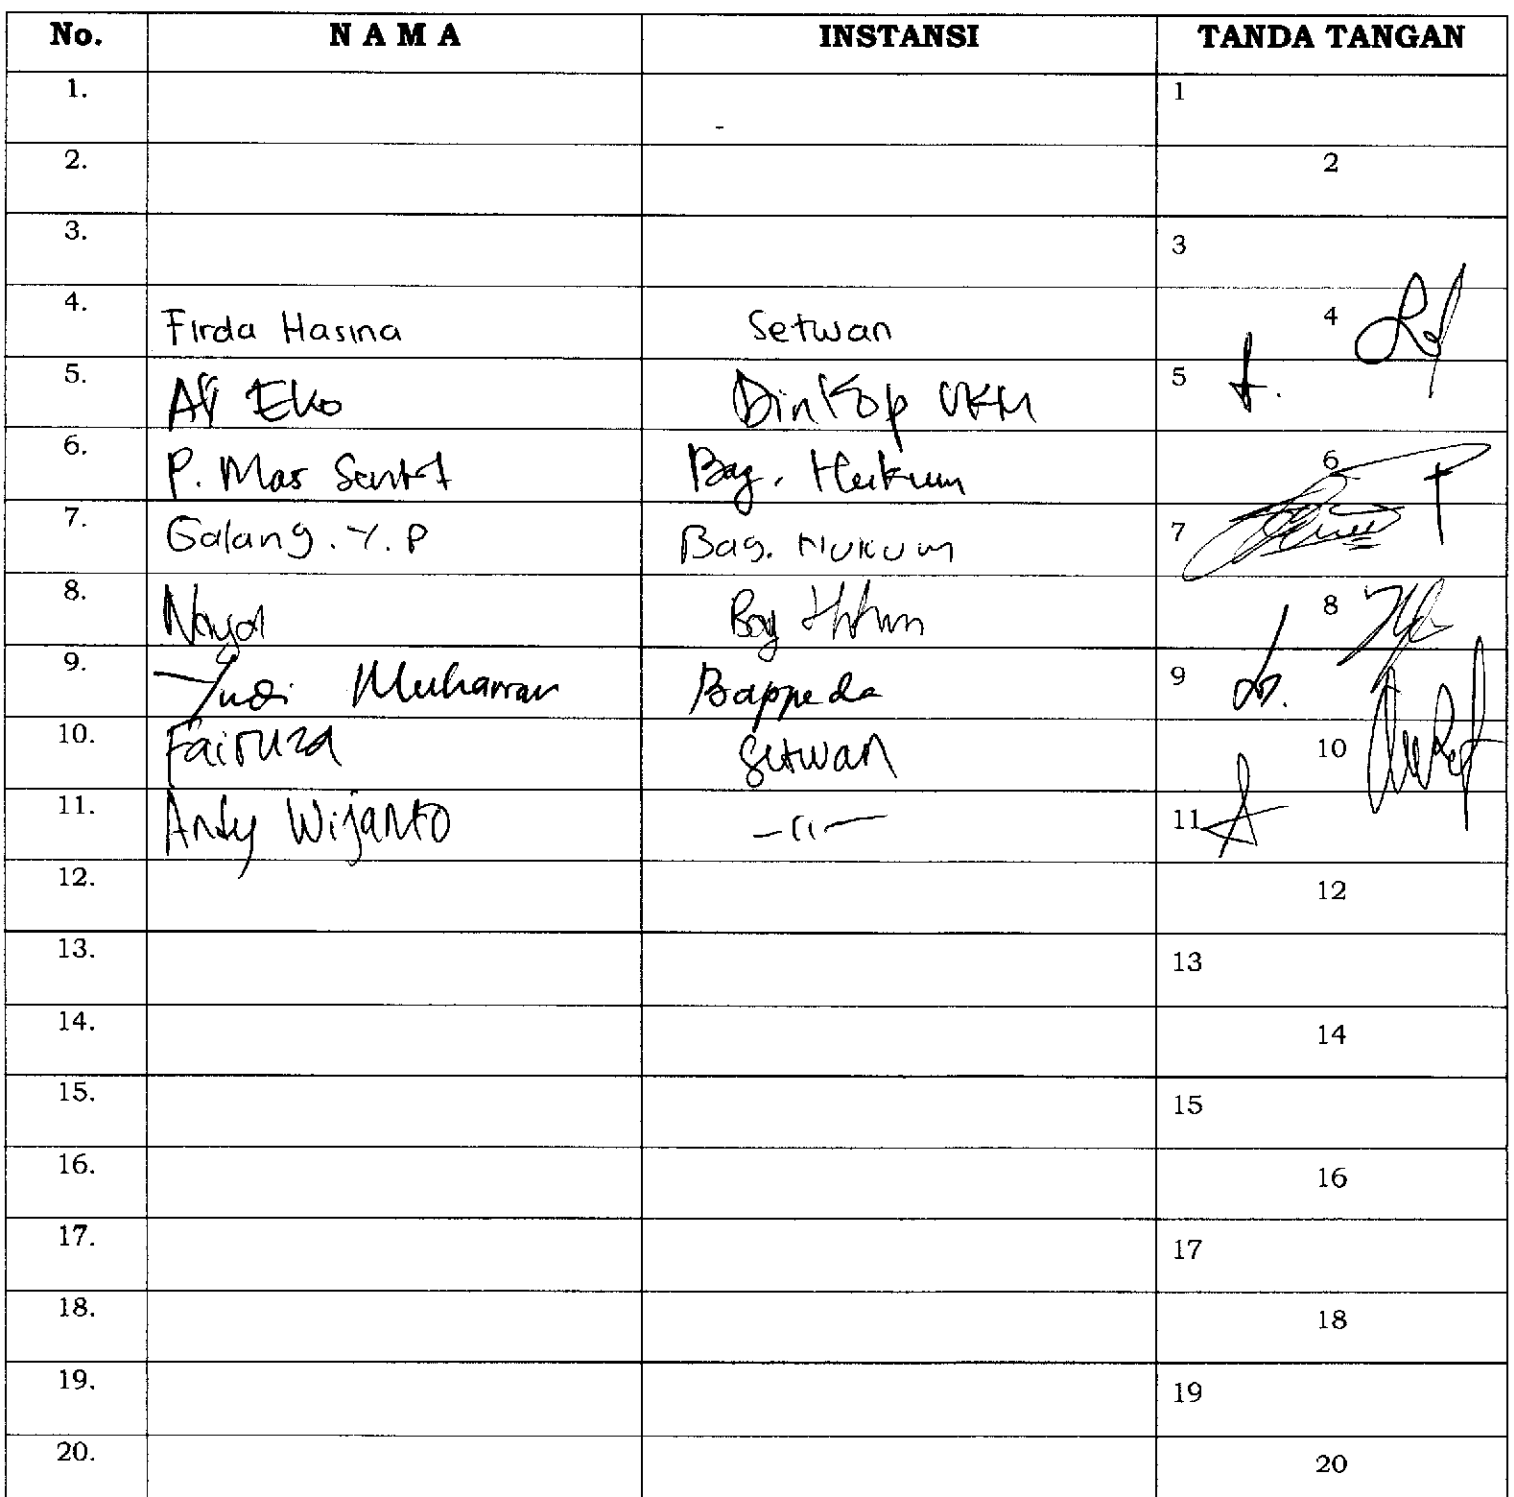 No. N A M A INSTANSI TANDA TANGAN
1. 1
2. 2
3. 3
4. Firda Hasina Setwan 4
5. Eko Dinkop UKM 5
6. P. Mas Bag. Hukum 6
7. Galang. Y. P Bag. Hukum 7
8. Bag Hukum 8
9. Yudi Muharram Bappeda 9
10. Fairuza Setwan 10
11. Andy Wijanto —〃— 11
12. 12
13. 13
14. 14
15. 15
16. 16
17. 17
18. 18
19. 19
20. 20